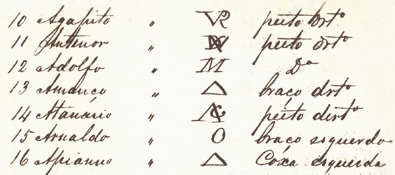 10 Agapito " VR peito Drto
11 Antenor " N peito drto
12 Adolfo " M Do
13 Amanço " Δ braço drto
14 Atanario " A peito dirto
15 Arnaldo " O braço esquerdo
16 Apianno " Δ Coxa esquerda